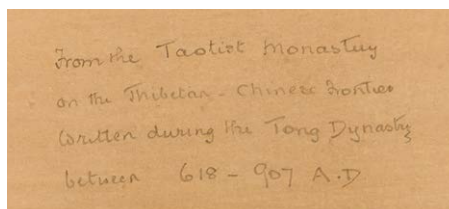 From the Taotist Monastery
on the Thibetan - Chinese Frontier
Written during the Tong Dynasty
between 618 - 907 A.D